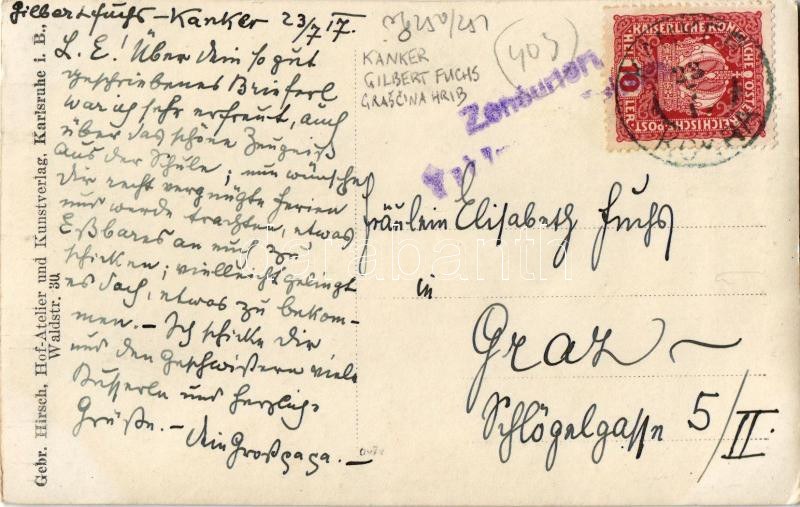 Gilbert Fuchs – Kanker 23/7 17.
L. E! Über Dein so gut
geschriebenes Brieferl
war ich sehr erfreut, auch
über das schöne Zeugniß
aus der Schule; nun wünsche
Dir recht vergnügte Ferien
und werde trachten, etwas
Eßbares an euch zu
schicken; vielleicht gelingt
es doch, etwas zu bekom-
men. – Ich schicke Dir
und den Geschwistern viele
Busserln und herzliche
Grüße. –
Dein Großpapa. –
250/251
403
KANKER
GILBERT FUCHS
GRAŠČINA HRIB
Zensuriert
KAISERLICHE KÖNIGLICHE
ÖSTERREICHISCHE POST
10 HELLER
Fräulein Elisabeth Fuchs
in
Graz
Schlögelgasse 5/II.
Gebr. Hirsch, Hof-Atelier und Kunstverlag, Karlsruhe i. B.,
Waldstr. 30
darabanth